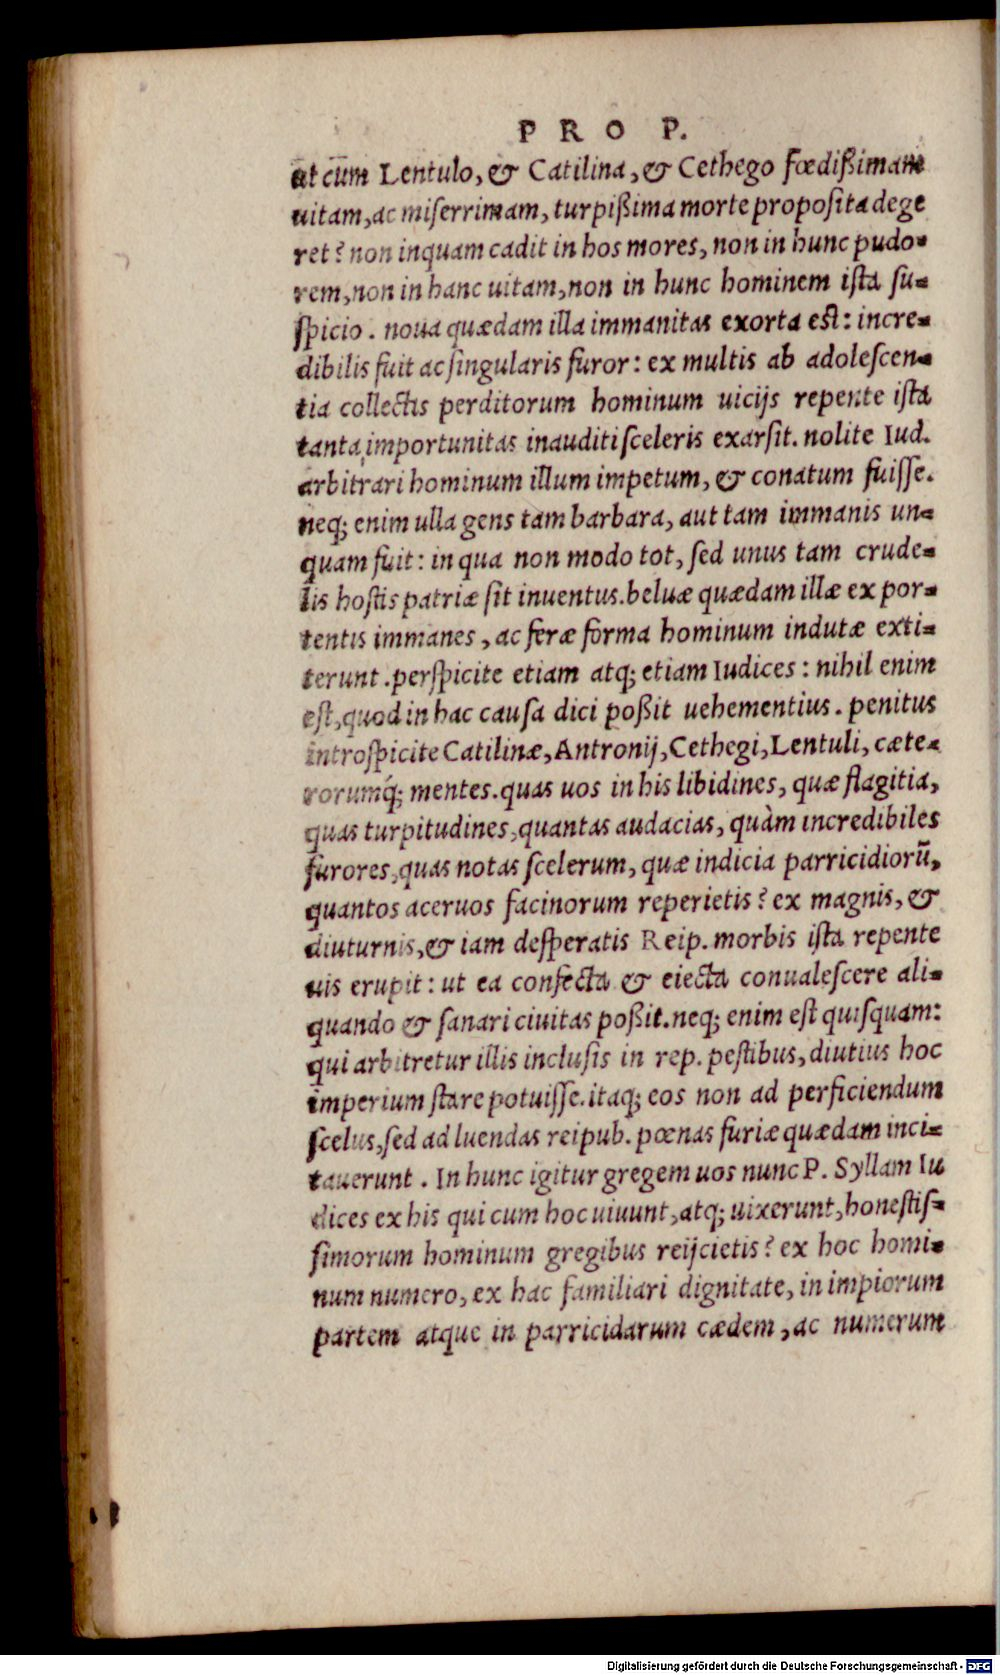 PRO P.
ut cum Lentulo, & Catilina, & Cethego fœdißimam
uitam, ac miſerrimam, turpißima morte propoſita dege
ret? non inquam cadit in hos mores, non in hunc pudo-
rem, non in hanc uitam, non in hunc hominem iſta ſu-
ſpicio. noua quædam illa immanitas exorta eſt: incre-
dibilis fuit ac ſingularis furor: ex multis ab adoleſcen-
tia collectis perditorum hominum uicijs repente iſta
tanta importunitas inauditi ſceleris exarſit. nolite Iud.
arbitrari hominum illum impetum, & conatum fuiſſe.
neq; enim ulla gens tam barbara, aut tam immanis un-
quam fuit: in qua non modo tot, ſed unus tam crude-
lis hoſtis patriæ ſit inuentus. beluæ quædam illæ ex por-
tentis immanes, ac feræ forma hominum indutæ exti-
terunt. perſpicite etiam atq; etiam Iudices: nihil enim
eſt, quod in hac cauſa dici poßit uehementius. penitus
introſpicite Catilinæ, Antronij, Cethegi, Lentuli, cæte-
rorumq́; mentes. quas uos in his libidines, quæ flagitia,
quas turpitudines, quantas audacias, quàm incredibiles
furores, quas notas ſcelerum, quæ indicia parricidiorū,
quantos aceruos facinorum reperietis? ex magnis, &
diuturnis, & iam deſperatis Reip. morbis iſta repente
uis erupit: ut ea confecta & eiecta conualeſcere ali-
quando & ſanari ciuitas poßit. neq; enim eſt quiſquam:
qui arbitretur illis incluſis in rep. peſtibus, diutius hoc
imperium ſtare potuiſſe. itaq; eos non ad perficiendum
ſcelus, ſed ad luendas reipub. pœnas furiæ quædam inci-
tauerunt. In hunc igitur gregem uos nunc P. Syllam Iu
dices ex his qui cum hoc uiuunt, atq; uixerunt, honeſtiſ-
ſimorum hominum gregibus reijcietis? ex hoc homi-
num numero, ex hac familiari dignitate, in impiorum
partem atque in parricidarum cædem, ac numerum
Digitalisierung gefördert durch die Deutsche Forschungsgemeinschaft - DFG